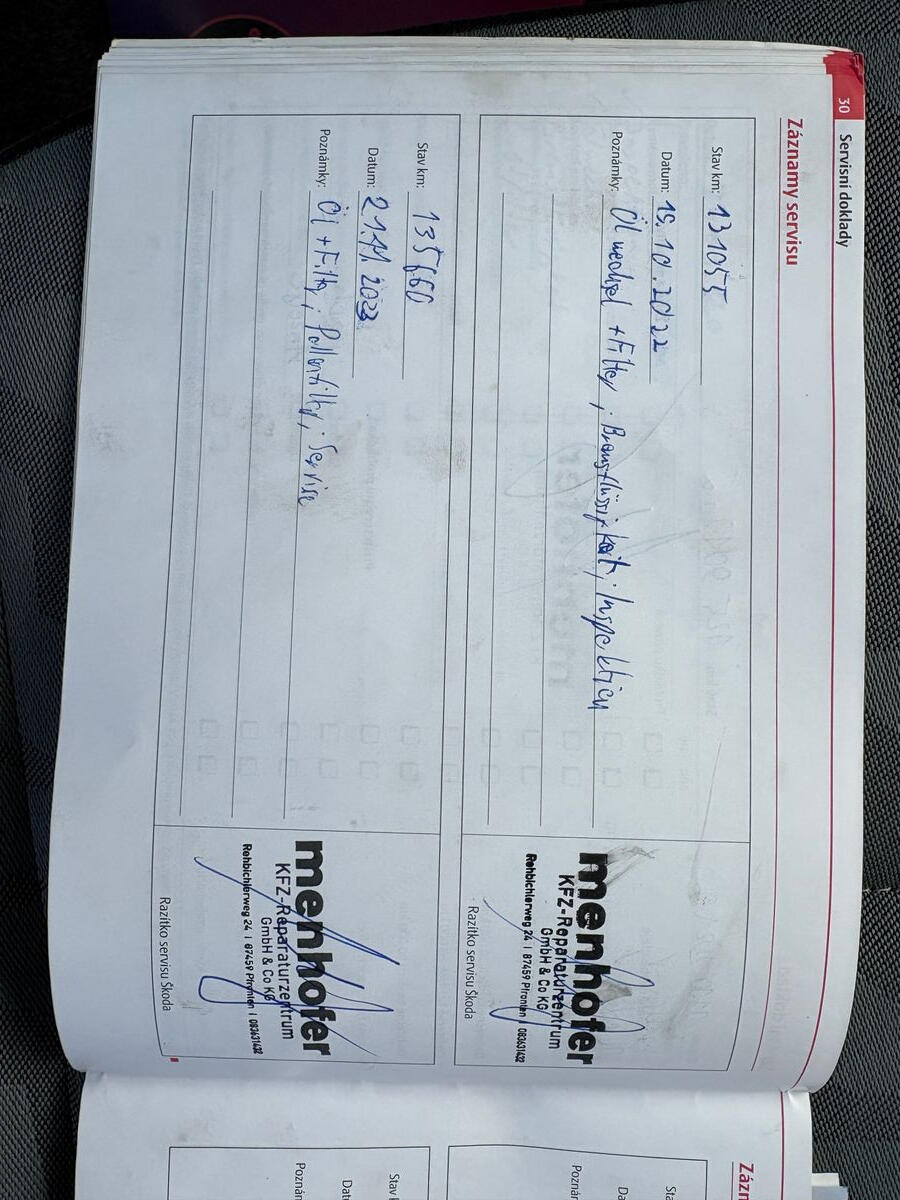 30
Servisní doklady
Záznamy servisu
Stav km: 131055
Datum: 19.10.2022
Poznámky: Ölwechsel + Filter, Bremsflüssigkeit, Inspektion
menhofer
KFZ-Reparaturzentrum
GmbH & Co KG
Rehbichlerweg 24 | 87459 Pfronten | 083631432
Razítko servisu Škoda
Stav km: 135660
Datum: 21.11.2023
Poznámky: Öl + Filter, Pollenfilter, Service
menhofer
KFZ-Reparaturzentrum
GmbH & Co KG
Rehbichlerweg 24 | 87459 Pfronten | 083631432
Razítko servisu Škoda
Zázn
Sta
Da
Poznám
Stav
Datu
Poznám